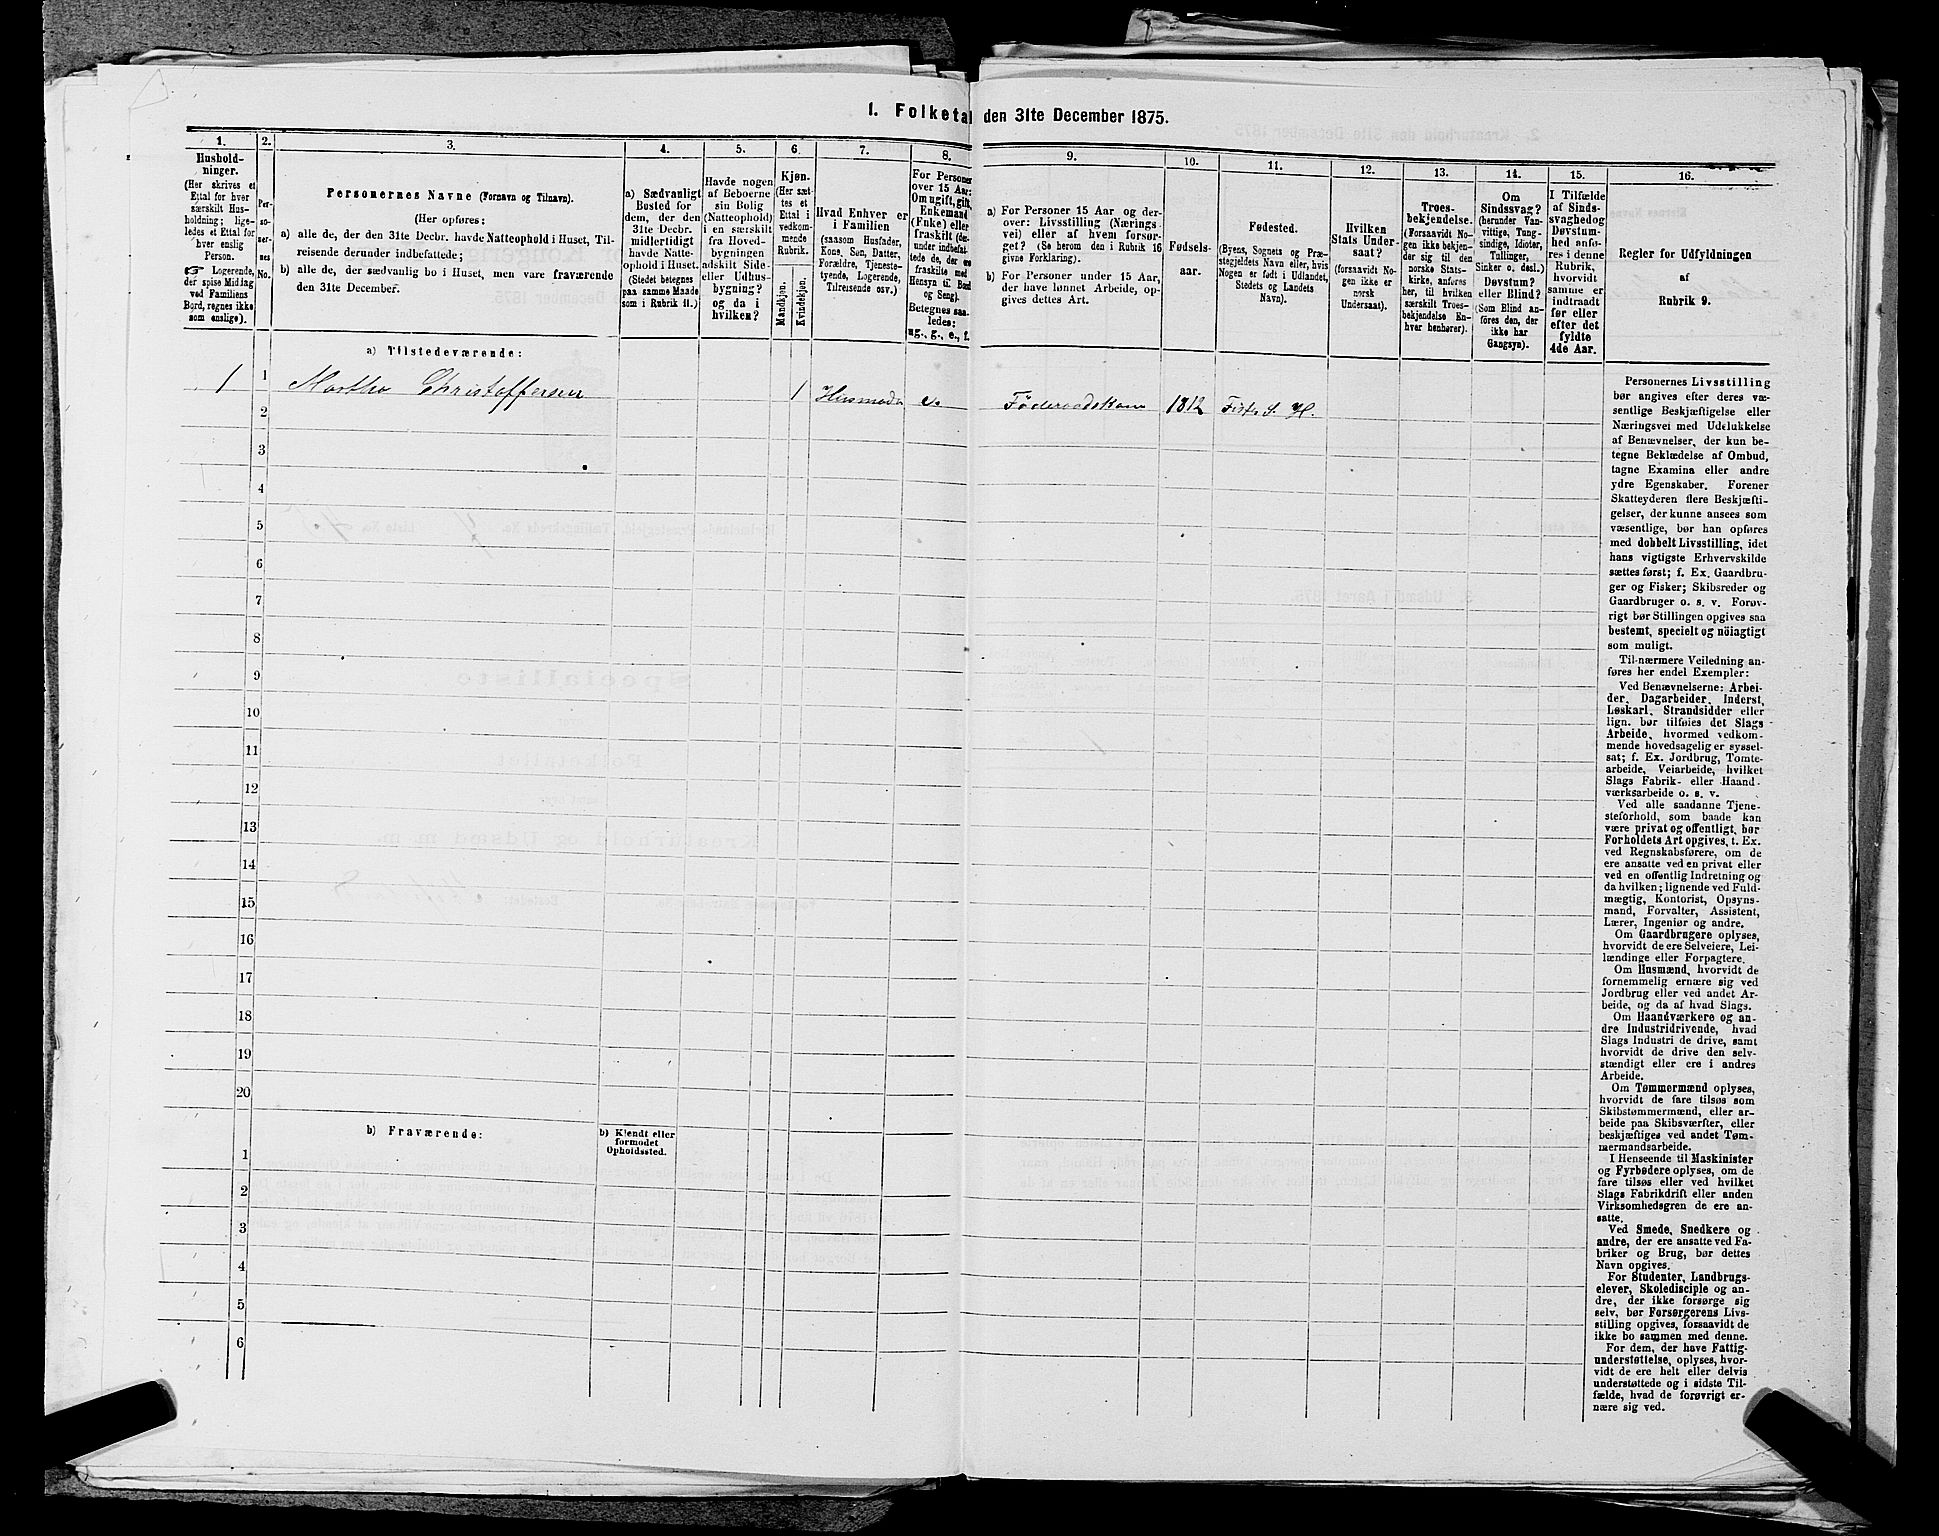 1. Folketal den 31te December 1875.
1.
Hushold-
ninger.
(Her skrives et
Ettal for hver
særskilt Hus-
holdning; lige-
ledes et Ettal for
hver enslig
Person.
☞ Logerende,
der spise Middag
ved Familiens
Bord, regnes ikke
som enslige).
2.
Per-
so-
ner-
nes
No.
3.
Personernes Navne (Fornavn og Tilnavn).
(Her opføres:
a) alle de, der den 31te Decbr. havde Natteophold i Huset, Til-
reisende derunder indbefattede;
b) alle de, der sædvanlig bo i Huset, men vare fraværende
den 31te December.
4.
a) Sædvanligt
Bosted for
dem, der den
31te Decbr.
midlertidigt
havde Natte-
ophold i Huset.
(Stedet betegnes
paa samme Maade
som i Rubrik 11.)
5.
Havde nogen
af Beboerne
sin Bolig
(Natteophold)
i en særskilt
fra Hoved-
bygningen
adskilt Side-
eller Udhus-
bygning?
og da i
hvilken?
6.
Kjøn.
(Her sæt-
tes et
Ettal i
vedkom-
mende
Rubrik.
Mandkjøn.
Kvindekjøn.
7.
Hvad Enhver er
i Familien
(saasom Husfader,
Kone, Søn, Datter,
Forældre, Tjeneste-
tyende, Logerende,
Tilreisende osv.)
8.
For Personer
over 15 Aar:
Om ugift, gift,
Enkemand
(Enke) eller
fraskilt (de-
runder indbefat-
tede de, der ere
fraskilte med
Hensyn til Bord
og Seng).
Betegnes saa-
ledes:
ug., g., e., f.
9.
a) For Personer 15 Aar og der-
over: Livsstilling (Nærings-
vei) eller af hvem forsør-
get? (Se herom den i Rubrik 16
givne Forklaring).
b) For Personer under 15 Aar,
der have lønnet Arbeide, op-
gives dettes Art.
10.
Fødsels-
aar.
11.
Fødested.
(Byens, Sognets og Præ-
stegjeldets Navn eller, hvis
Nogen er født i Udlandet,
Stedets og Landets
Navn).
12.
Hvilken
Stats Under-
saat?
(forsaavidt No-
gen ikke er
norsk
Undersaat).
13.
Troes-
bekjendelse.
(Forsaavidt No-
gen ikke bekjen-
der sig til den
norske Stats-
kirke, anføres
her, til hvilken
særskilt Troes-
bekjendelse En-
hver henhører).
14.
Om
Sindssvag?
(herunder Van-
vittige, Tung-
sindige, Idioter,
Tullinger,
Sinker o. desl.)
Døvstum?
eller Blind?
(Som Blind an-
føres den, der
ikke har
Gangsyn).
15.
I Tilfælde
af Sinds-
svaghed og
Døvstum-
hed anfø-
res i denne
Rubrik,
hvorvidt
samme er
indtraadt
før eller
efter det
fyldte
4de Aar.
16.
Regler for Udfyldningen
af
Rubrik 9.
a) Tilstedeværende:
1 1 Martha Christoffersen 1 Husmoder e. Føderaadskone 1812 S. H.
2
3
4
5
6
7
8
9
10
11
12
13
14
15
16
17
18
19
20
b) Fraværende:
b) Kjendt eller
formodet
Opholdssted.
1
2
3
4
5
6
Personernes Livsstilling
bør angives efter deres væ-
sentlige Beskjæftigelse eller
Næringsvei med Udelukkelse
af Benævnelser, der kun be-
tegne Beklædelse af Ombud,
tagne Examina eller andre
ydre Egenskaber. Forener
Skatteyderen flere Beskjæfti-
gelser, der kunne ansees som
væsentlige, bør han opføres
med dobbelt Livsstilling, idet
hans vigtigste Erhvervskilde
sættes først; f. Ex. Gaardbru-
ger og Fisker; Skibsreder og
Gaardbruger o. s. v. Forøv-
rigt bør Stillingen opgives saa
bestemt, specielt og nöiagtigt
som muligt.
Til nærmere Veiledning an-
føres her endel Exempler:
Ved Benævnelserne: Arbei-
der, Dagarbeider, Inderst,
Løskarl, Strandsidder eller
lign. bør tilføies det Slags
Arbeide, hvormed vedkom-
mende hovedsagelig er syssel-
sat; f. Ex. Jordbrug, Tomte-
arbeide, Veiarbeide, hvilket
Slags Fabrik- eller Haand-
værksarbeide o. s. v.
Ved alle saadanne Tjene-
steforhold, som baade kan
være privat og offentligt, bør
Forholdets Art opgives, t. Ex.
ved Regnskabsførere, om de
ere ansatte ved en privat eller
ved en offentlig Indretning og
da hvilken; lignende ved Fuld-
mægtig, Kontorist, Opsyns-
mand, Forvalter, Assistent,
Lærer, Ingeniør og andre.
Om Gaardbrugere oplyses,
hvorvidt de ere Selveiere, Lei-
lændinge eller Forpagtere.
Om Husmænd, hvorvidt de
fornemmelig ernære sig ved
Jordbrug eller ved andet Ar-
beide, og da af hvad Slags.
Om Haandværkere og an-
dre Industridrivende, hvad
Slags Industri de drive, samt
hvorvidt de drive den selv-
stændigt eller ere i andres
Arbeide.
Om Tømmermænd oplyses,
hvorvidt de fare tilsøs som
Skibstømmermænd, eller ar-
beide paa Skibsværfter, eller
beskjæftiges ved andet Tøm-
mermandsarbeide.
I Henseende til Maskinister
og Fyrbødere oplyses, om de
fare tilsøs eller ved hvilket
Slags Fabrikdrift eller anden
Virksomhedsgren de ere an-
satte.
Ved Smede, Snedkere og
andre, der ere ansatte ved Fa-
briker og Brug, bør dettes
Navn opgives.
For Studenter, Landbrugs-
elever, Skoledisciple og an-
dre, der ikke forsørge sig
selv, bør Forsørgerens Livs-
stilling opgives, forsaavidt de
ikke bo sammen med denne.
For dem, der have Fattig-
understøttelse, oplyses, hvor-
vidt de ere helt eller delvis
understøttede og i sidste Til-
fælde, hvad de forøvrigt er-
nære sig ved.